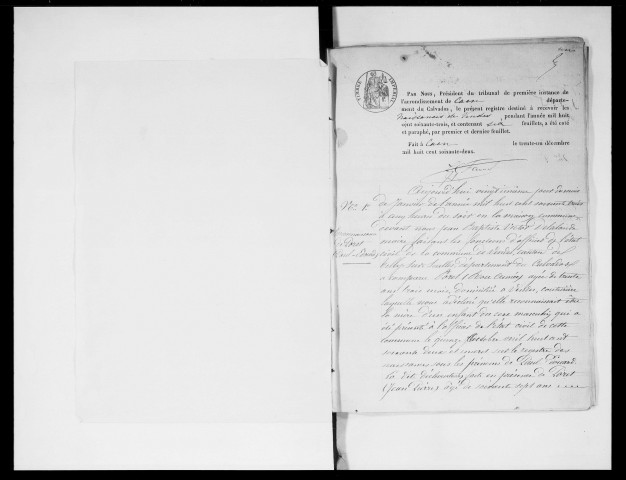 Par Nous, Président du tribunal de première instance de
l'arrondissement de Caen départe-
ment du Calvados, le présent registre destiné à recevoir les
Naissances de Vendes pendant l'année mil huit
cent soixante-trois, et contenant six feuillets, a été coté
et paraphé, par premier et dernier feuillet.
Fait à Caen le trente-un décembre
mil huit cent soixante-deux.
Aujourd'hui vingtième jour du mois
de Janvier de l'année mil huit cent soixante trois
à cinq heures du soir en la maison commune
devant nous Jean Baptiste
maire faisant les fonctions d'officier de l'état
civil de la commune de Vendes, canton de
Tilly sur Seulles département du Calvados
a comparu Poret âgée de trente
ans trois mois, domiciliée à Vendes, couturière
laquelle nous a déclaré qu'elle reconnaissait être
la mère d'un enfant du sexe masculin qui a
été présenté à l'officier de l'état civil de cette
commune le quinze Octobre mil huit cent
soixante deux et inscrit sur le registre des
naissances sous les prénoms de Paul Edouard
la dite déclaration faite en présence de Poret
âgé de soixante sept ans